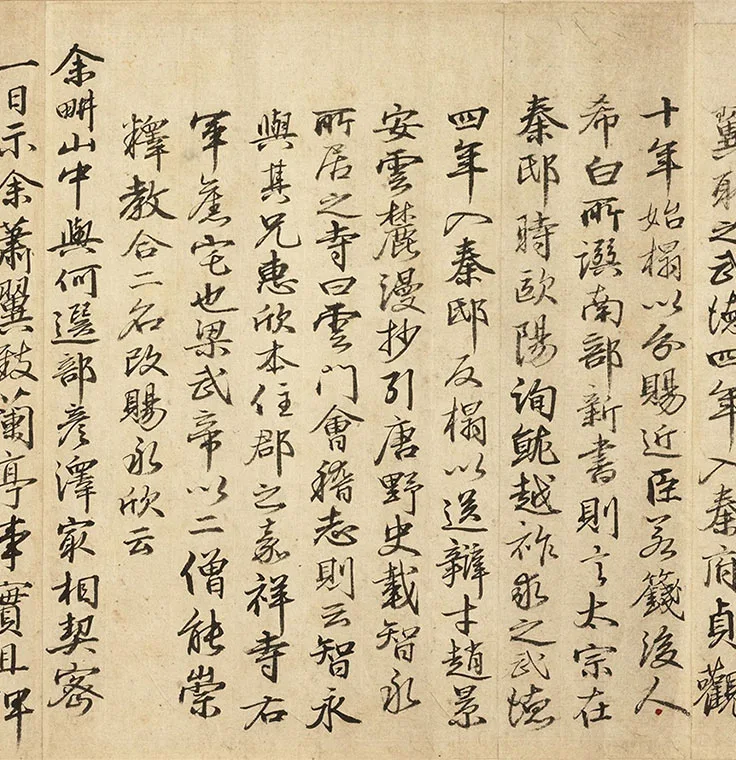 翼取之武德四年入秦府貞觀
十年始榻以分賜近臣若籛後人
希白所譔南部新書則言太宗在
秦邸時歐陽詢就越祚求之武德
四年入秦邸反榻以送辯才趙景
安雲麓漫抄引唐野史載智永
所居之寺曰雲門會稽志則云智永
與其兄惠欣本住郡之嘉祥寺右
軍舊宅也梁武帝以二僧能崇
釋教合二名改賜永欣云
余畊山中與何選部彥澤寂相契密
一日示余蕭翼敲蘭亭事實且畀